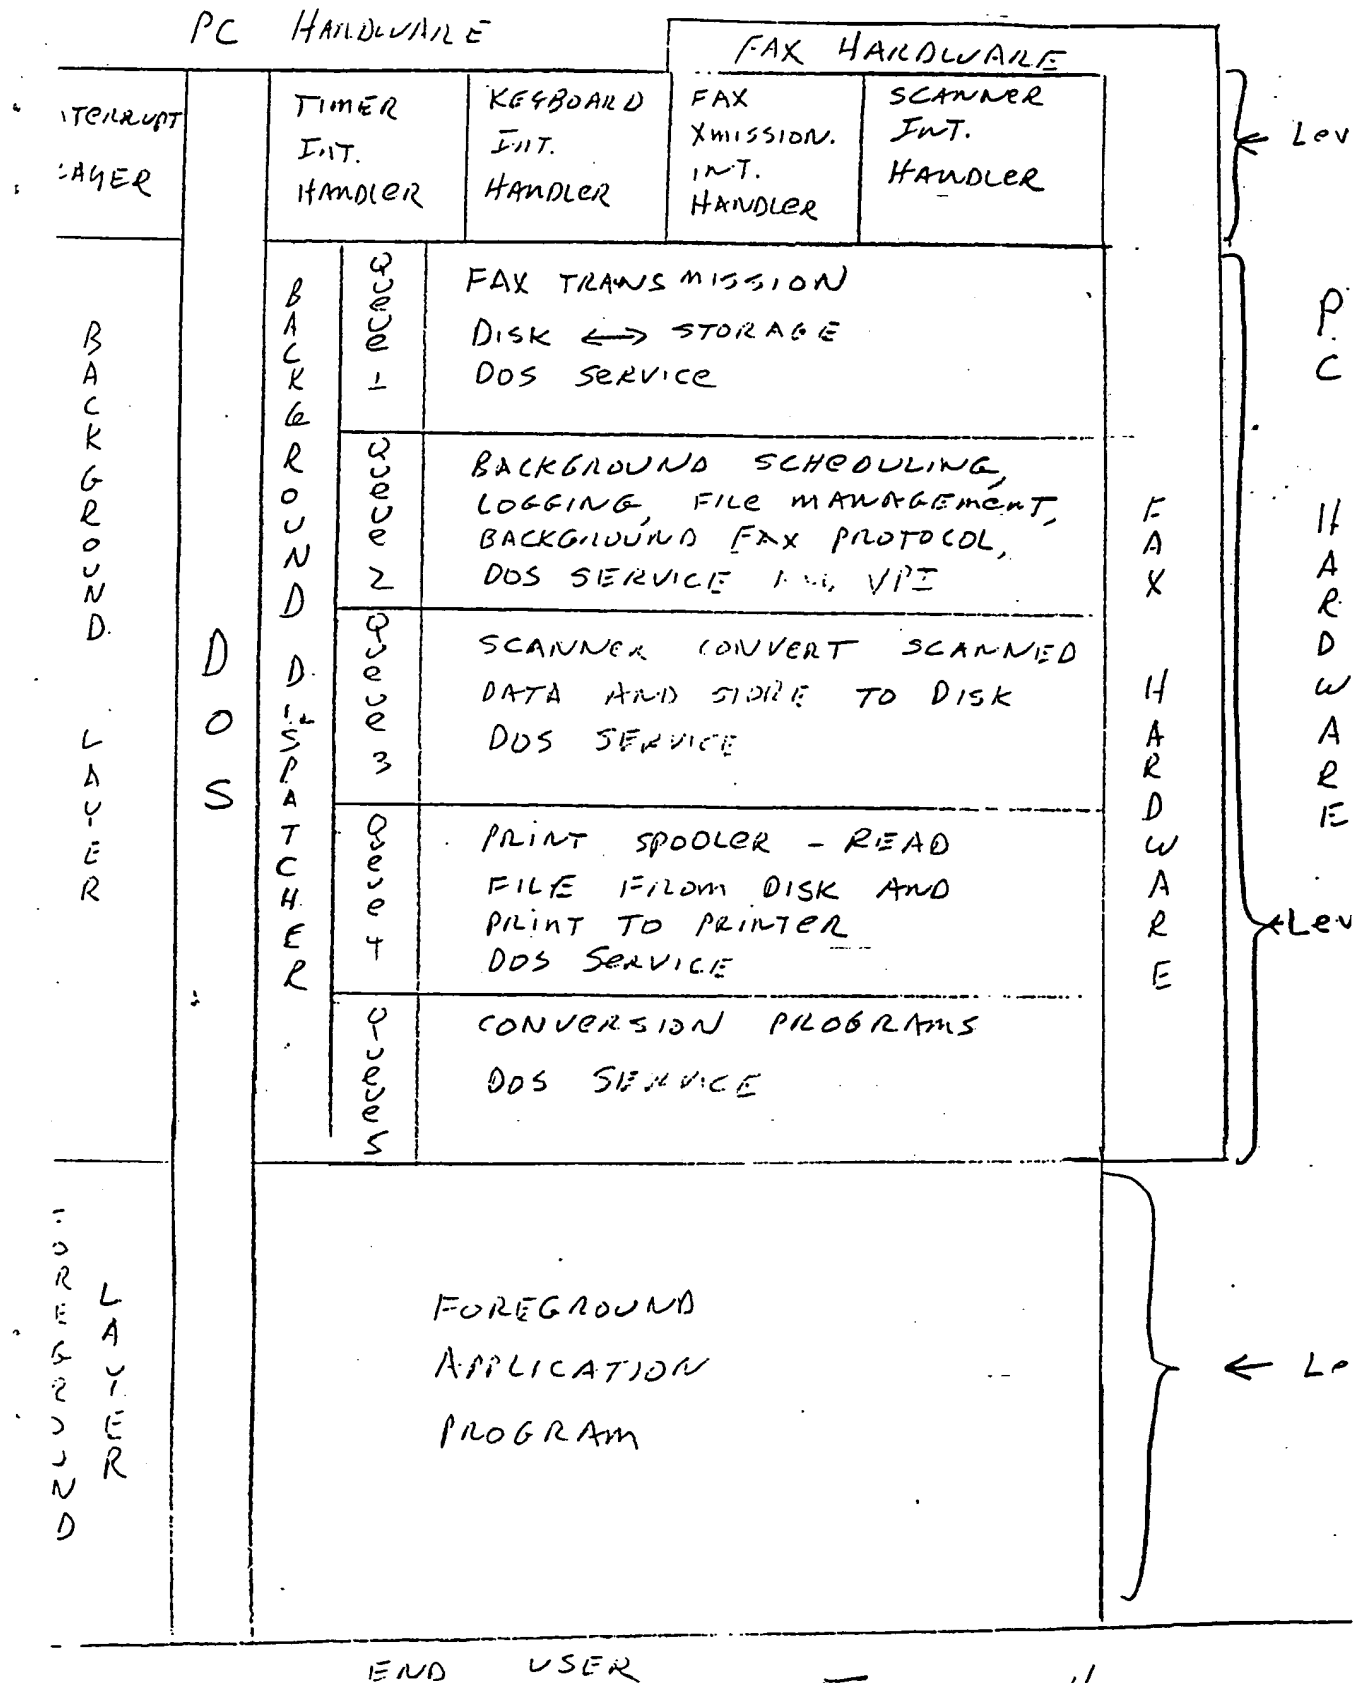 PC HARDWARE
FAX HARDWARE
TIMER
INT.
HANDLER
KEYBOARD
INT.
HANDLER
FAX
XMISSION.
INT.
HANDLER
SCANNER
INT.
HANDLER
BACKGROUND LAYER
DOS
BACKGROUND DISPATCHER
Queue 1
FAX TRANSMISSION
DISK ↔ STORAGE
DOS SERVICE
Queue 2
BACKGROUND SCHEDULING,
LOGGING, FILE MANAGEMENT,
BACKGROUND FAX PROTOCOL,
DOS SERVICE VPI
Queue 3
SCANNER CONVERT SCANNED
DATA AND STORE TO DISK
DOS SERVICE
Queue 4
PRINT SPOOLER - READ
FILE FROM DISK AND
PRINT TO PRINTER
DOS SERVICE
Queue 5
CONVERSION PROGRAMS
DOS SERVICE
FAX HARDWARE
PC HARDWARE
← Lev
← Lev
FOREGROUND LAYER
FOREGROUND
APPLICATION
PROGRAM
← Le
END USER